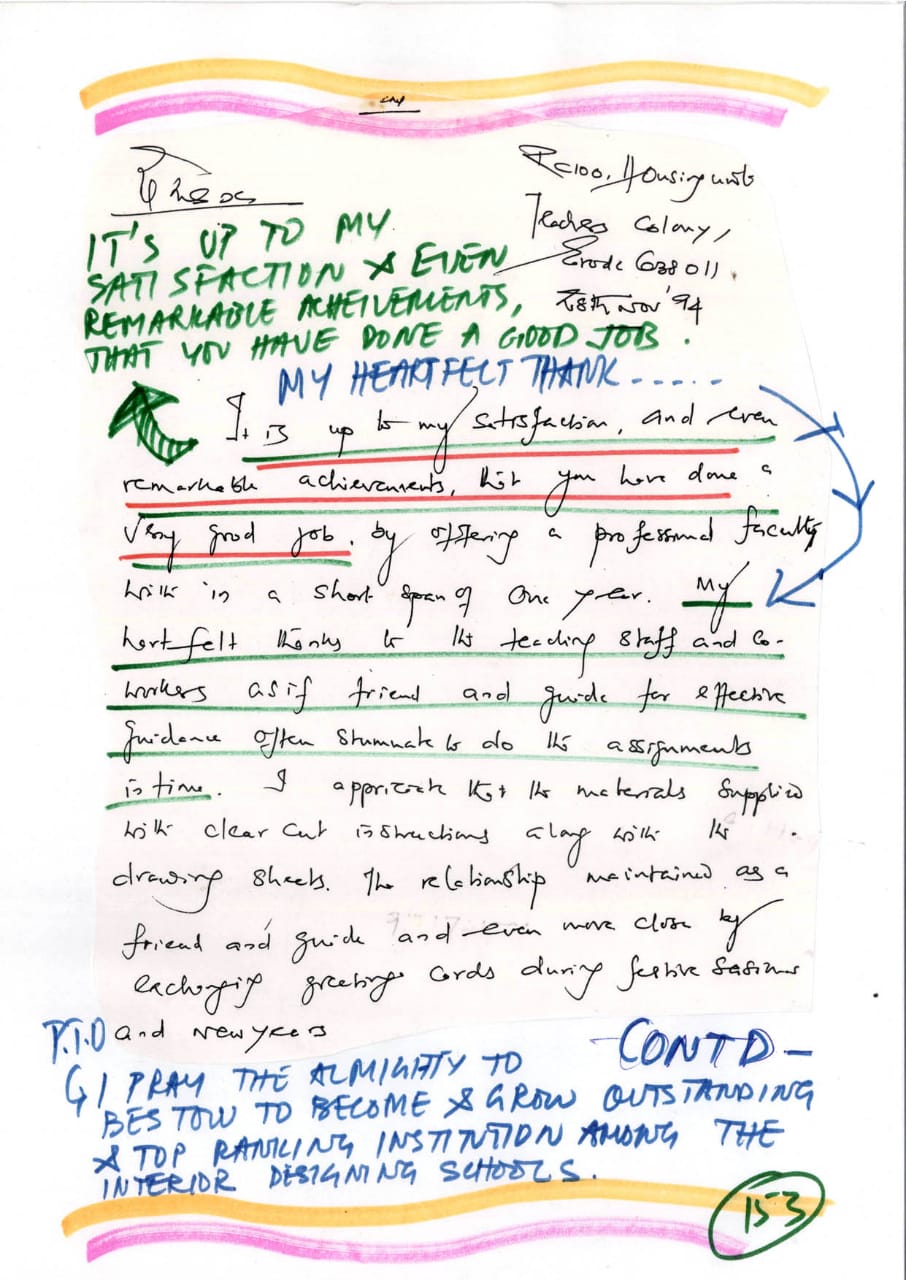 Rc100, Housing unit
Teachers Colony,
Erode 638 011
28th Nov '94
IT'S UP TO MY
SATISFACTION & EVEN
REMARKABLE ACHEIVEMENTS,
THAT YOU HAVE DONE A GOOD JOB.
MY HEARTFELT THANK......
It is up to my satisfaction, and even
remarkable achievements, that you have done a
very good job, by offering a professional faculty
with in a short span of one year. My
hertfelt thanks to the teaching staff and co-
workers as if friend and guide for effective
Guidance often to do the assignments
is time. I appriciate that the materials supplied
with clear cut instructions along with the
drawing sheets. The relationship maintained as a
friend and guide and even more close by
exchanging greetings cards during festive
and New years
P.T.O
CONTD-
I PRAY THE ALMIGHTY TO
BESTOW TO BECOME & GROW OUTSTANDING
& TOP RANKING INSTITUTION AMONG THE
INTERIOR DESIGNING SCHOOLS.
153